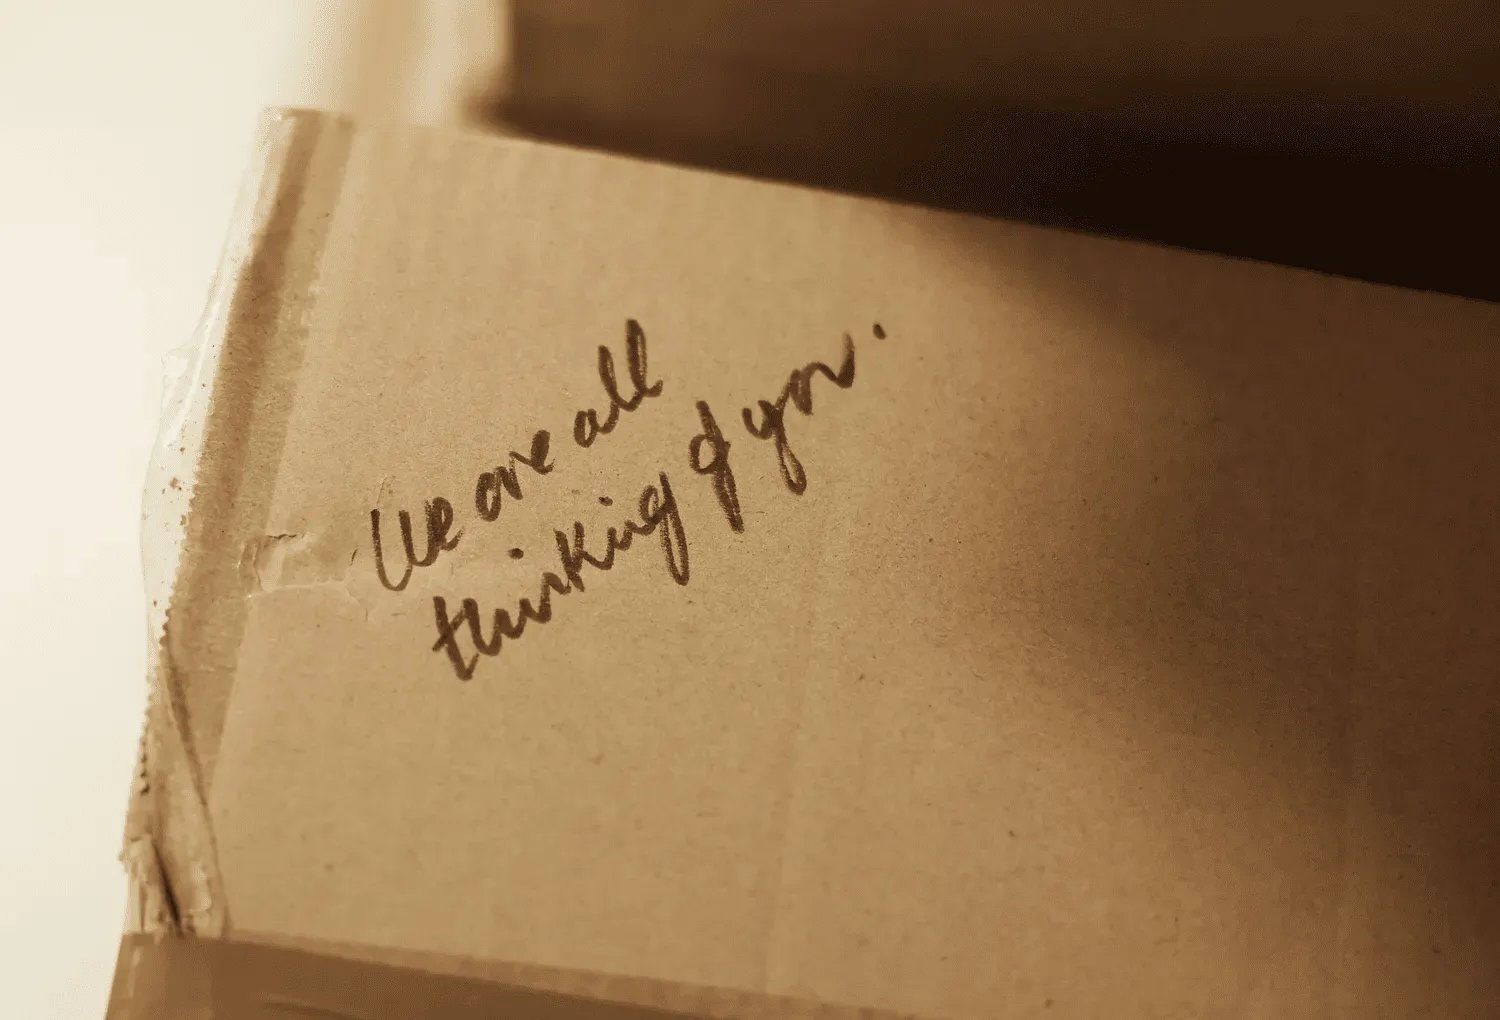 We are all
thinking of you.